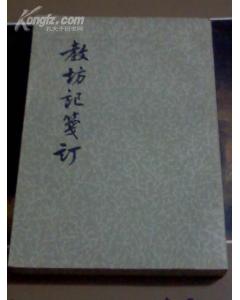 教坊記箋訂
孔夫子旧书网